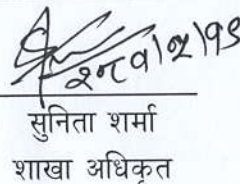 सुनिता शर्मा
शाखा अधिकृत